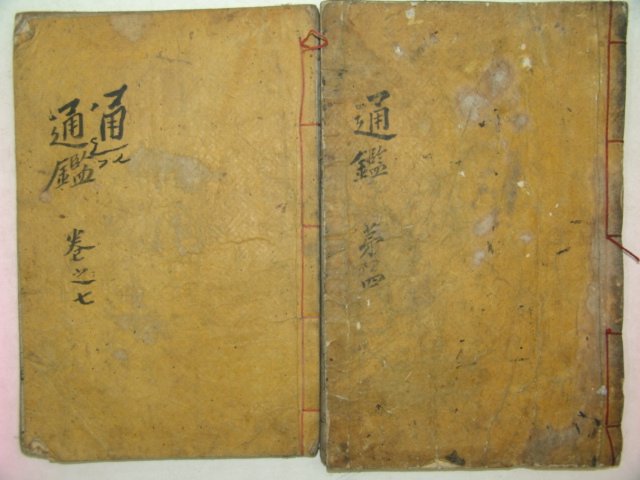 通
通鑑 卷之七
通鑑 第四